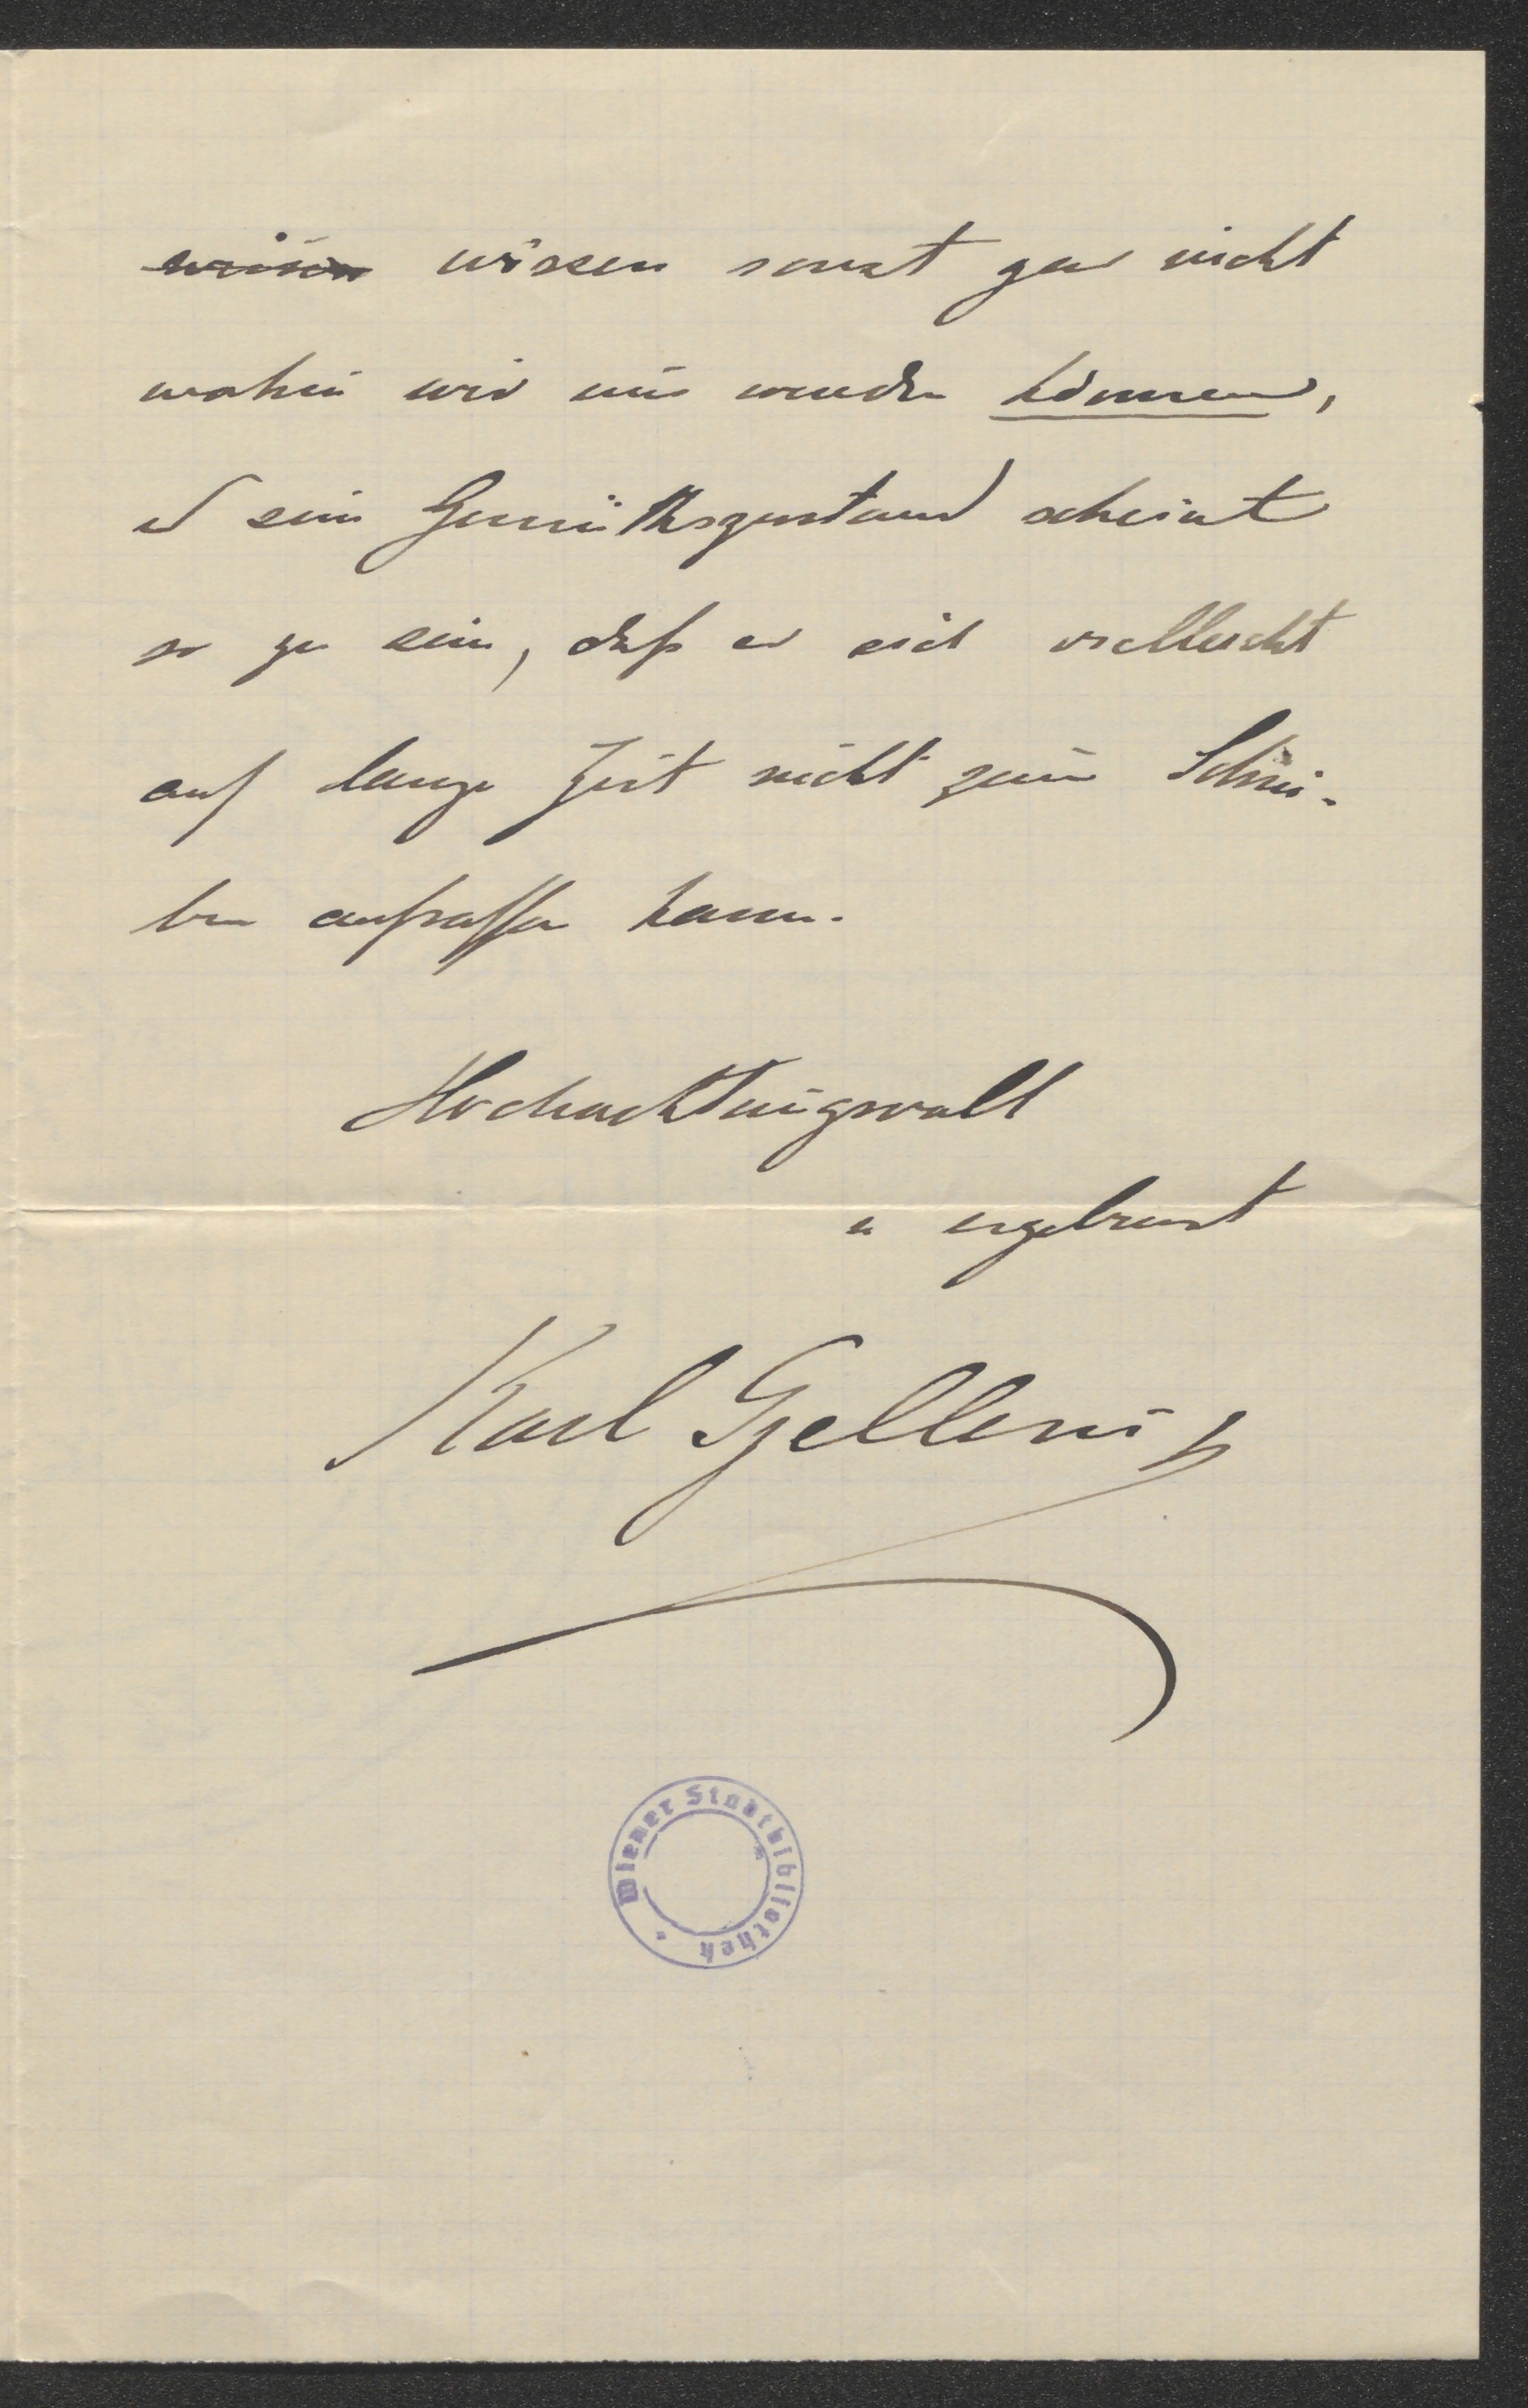 wissen wissen sonst gar nicht
wohin wir uns wenden können,
u sein Gemüthszustand scheint
so zu sein, daß er sich vielleicht
auf lange Zeit nicht zum Schrei-
ben aufraffen kann.
Hochachtungsvoll
u ergebenst
Karl Gjellerup
Wiener Stadtbibliothek